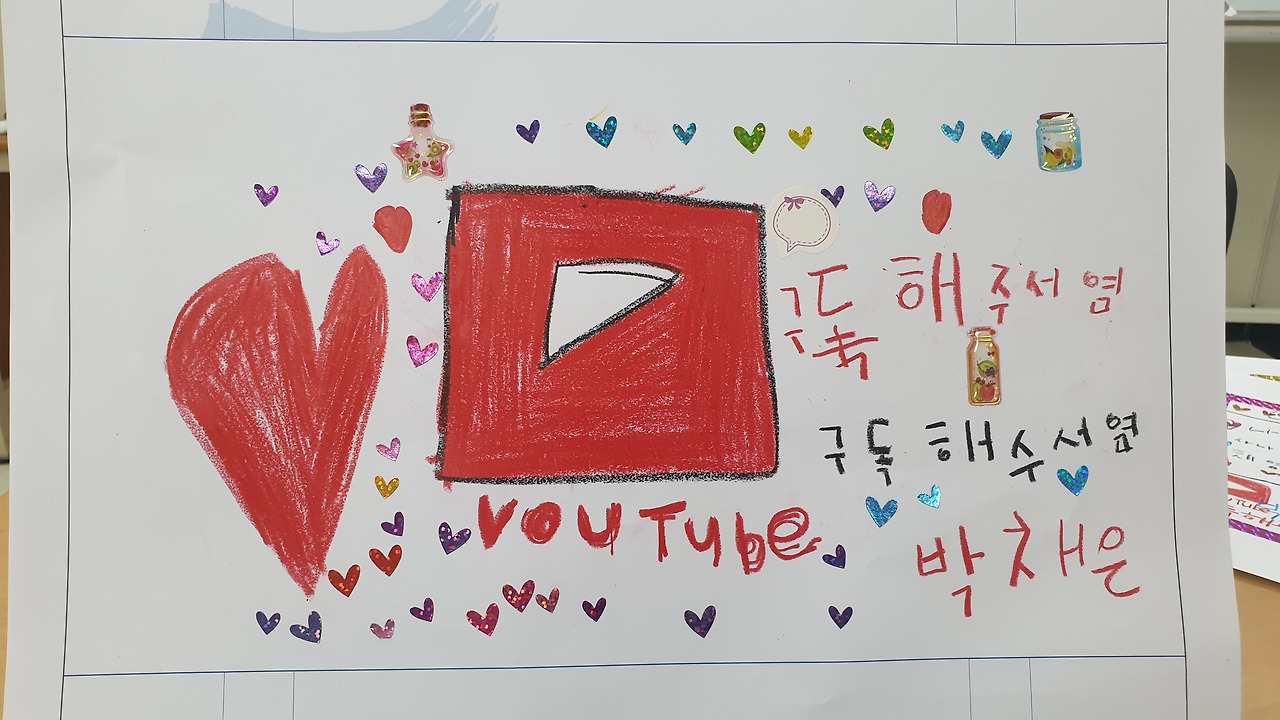 구독 해 주서 염
구독 해 주서염
YouTube
박채은